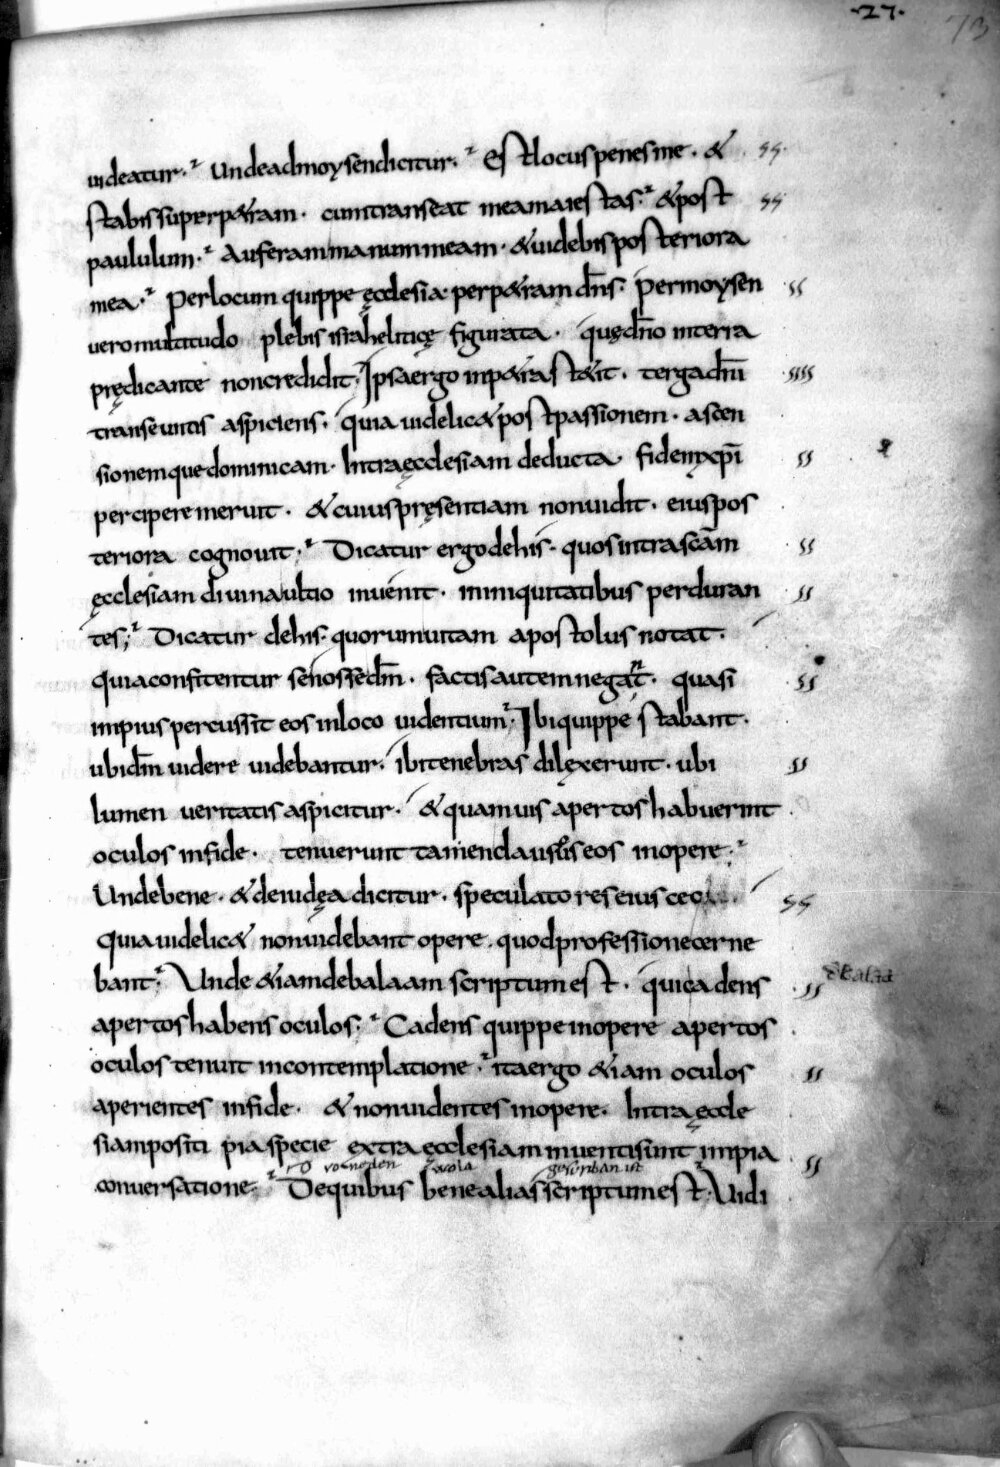 ·27·
73
uideatur. Unde ad moysen dicitur. Est locus penes me. &
stabis super p&ram. cum transeat mea maiestas. & post
paululum. Auferam manum meam. & uidebis posteriora
mea. Per locum quippe ęcclesia. per p&ram dn̄s. Per moysen
uero multitudo plebis israheliticę figurata. quę dn̄o in terra
prędicante non credidit. Ipsa ergo in p&ra st&it. terga dn̄i
transeuntis aspiciens. quia uidelic& post passionem. ascen
sionemque dominicam. Intra ęcclesiam deducta fidem xp̄i
percipere meruit. & cuius pręsentiam non uidit. eius pos
teriora cognouit. Dicatur ergo de his. quos intra scām
ęcclesiam diuina ultio inuenit. in iniquitatibus perduran
tes; Dicatur de his. quorum uitam apostolus notat.
quia confitentur se nosse dm̄. factis autem negant. quasi
impius percussit eos in loco uidentium. Ibi quippe stabant.
ubi dm̄ uidere uidebantur. ibi tenebras dilęxerunt. ubi
lumen ueritatis aspicitur. & quamuis apertos habuerint
oculos in fide. tenuerunt tamen clausos eos in opere.
Unde bene. & de iudęa dicitur. speculatores eius
Quia uidelic& non uidebant opere. quod professione cerne
bant. Unde &iam de balaam scriptum est. qui cadens
apertos habens oculos. Cadens quippe in opere apertos
oculos tenuit in contemplatione. ita ergo &iam oculos
aperientes in fide. & non uidentes in opere. Intra ęccle
siam positi pia specie extra ęcclesiam inuenti sunt impia
gescriban ist
conuersatione. De quibus bene alias scriptum est. Uidi